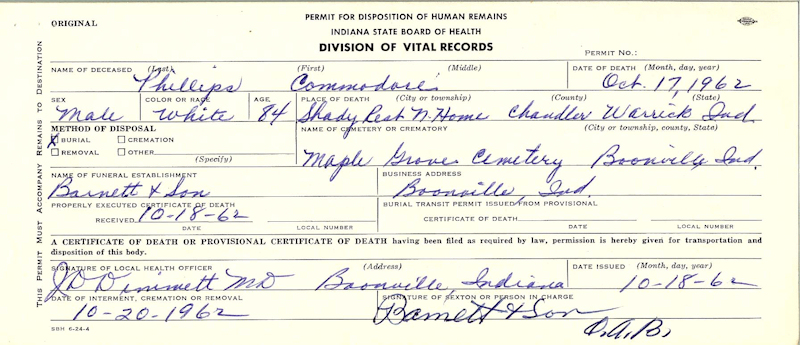 ORIGINAL
PERMIT FOR DISPOSITION OF HUMAN REMAINS
INDIANA STATE BOARD OF HEALTH
DIVISION OF VITAL RECORDS
PERMIT NO.:
THIS PERMIT MUST ACCOMPANY REMAINS TO DESTINATION
NAME OF DECEASED (Last) (First) (Middle) DATE OF DEATH (Month, day, year)
Phillips Commodore Oct. 17, 1962
SEX COLOR OR RACE AGE PLACE OF DEATH (City or township) (County) (State)
Male White 84 Shady Rest N. Home Chandler Warrick Ind.
METHOD OF DISPOSAL NAME OF CEMETERY OR CREMATORY (City or township, county, State)
X BURIAL CREMATION
REMOVAL OTHER
(Specify)
Maple Grove Cemetery Boonville Ind.
NAME OF FUNERAL ESTABLISHMENT BUSINESS ADDRESS
Barnett & Son Boonville, Ind
PROPERLY EXECUTED CERTIFICATE OF DEATH BURIAL TRANSIT PERMIT ISSUED FROM PROVISIONAL
RECEIVED 10-18-62 CERTIFICATE OF DEATH
DATE LOCAL NUMBER DATE LOCAL NUMBER
A CERTIFICATE OF DEATH OR PROVISIONAL CERTIFICATE OF DEATH having been filed as required by law, permission is hereby given for transportation and
disposition of this body.
SIGNATURE OF LOCAL HEALTH OFFICER (Address) DATE ISSUED (Month, day, year)
JD Dimmett MD Boonville, Indiana 10-18-62
DATE OF INTERMENT, CREMATION OR REMOVAL SIGNATURE OF SEXTON OR PERSON IN CHARGE
10-20-1962 Barnett & Son
O.A.B.
SBH 6-24-4